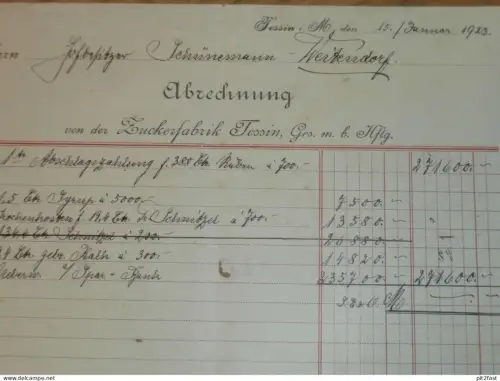 Tessin i. M., den 15. / Januar 1923.
Hofbesitzer Schünemann - Weitendorf.
Abrechnung
von der Zuckerfabrik Tessin, Ges. m. b. Hftg.
1te Abschlagszahlung f. 388 Ctr. Rüben à 700.- 271600.-
1,5 Ctr. Syrup à 5000.- 7500.-
Trockenkosten f. 19,4 Ctr. Schnitzel à 700.- 13580.-
Schnitzel à 200.-
Ctr. gebr. Kalk à 300.- 14820.-
/ Spar - Bank 235700.- 271600.-
M